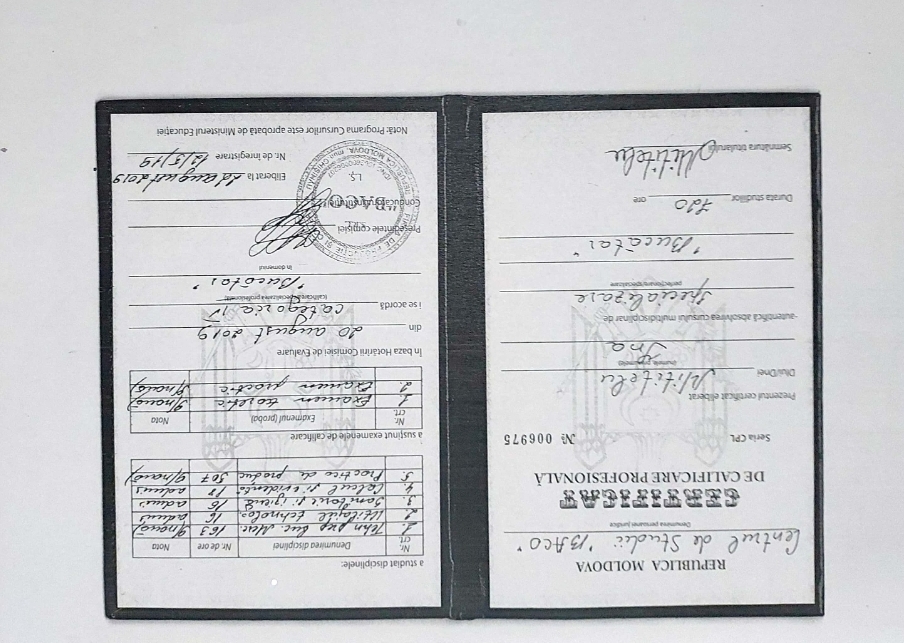 REPUBLICA MOLDOVA
Centrul de Studii "BACO"
Denumirea persoanei juridice
CERTIFICAT
DE CALIFICARE PROFESIONALĂ
Seria CPL № 006975
Prezentul certificat eliberat
Dlui/Dnei Mititelu
(numele, prenumele)
Ina
autentifică absolvirea cursului multidisciplinar de
specializare
perfecționare/specializare
"Bucătar"
Durata studiilor 720 ore
Semnătura titularului Mititelu
a studiat disciplinele:
Nr. crt. Denumirea disciplinei Nr. de ore Nota
1. Tehn. prep. buc. Mar. 163 9/nouă)
2. Utilajele tehnolog. 16 admis
3. Sanitarie și igienă 16 admis
4. Calcul și evidență 18 admis
5. Practica de produc. 507 9/nouă)
a susținut examenele de calificare
Nr. crt. Examenul (proba) Nota
1. Examen teoretic 9/nouă)
2. Examen practic 9/nouă)
În baza Hotărîrii Comisiei de Evaluare
din 20 august 2019
i se acordă categoria IV
(calificarea/specializarea profesională)
"Bucătar"
în domeniul
Președintele comisiei
Conducătorul instituției
L.Ș.
"BACO"
Eliberat la 22 august 2019
Nr. de înregistrare 12/5/19
Notă: Programa Cursurilor este aprobată de Ministerul Educației